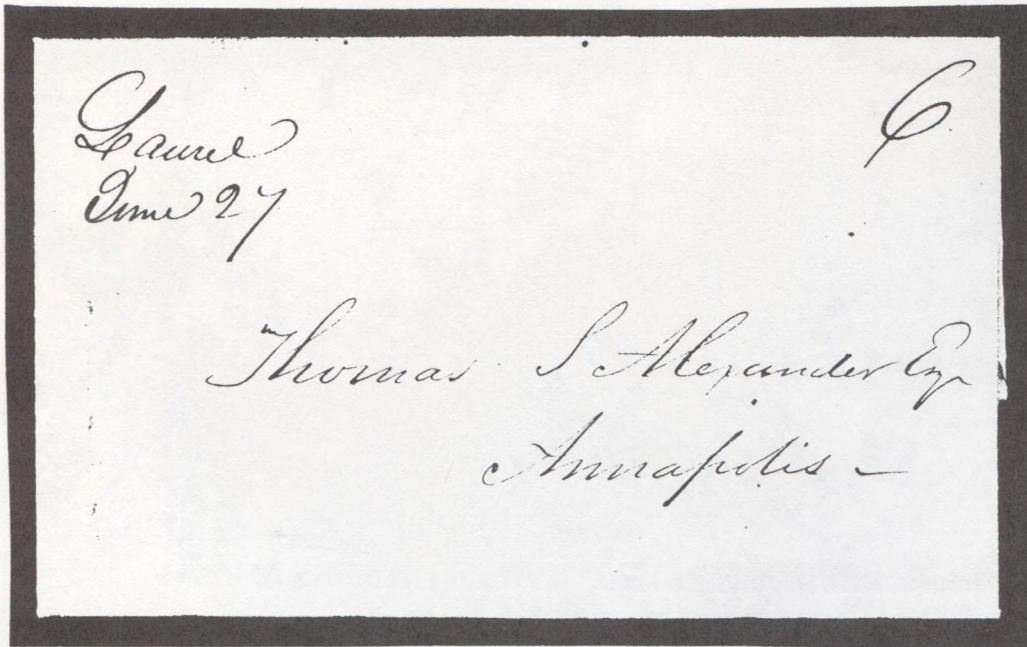 Laurel
June 27
6
Thomas S Alexander Esqr
Annapolis –